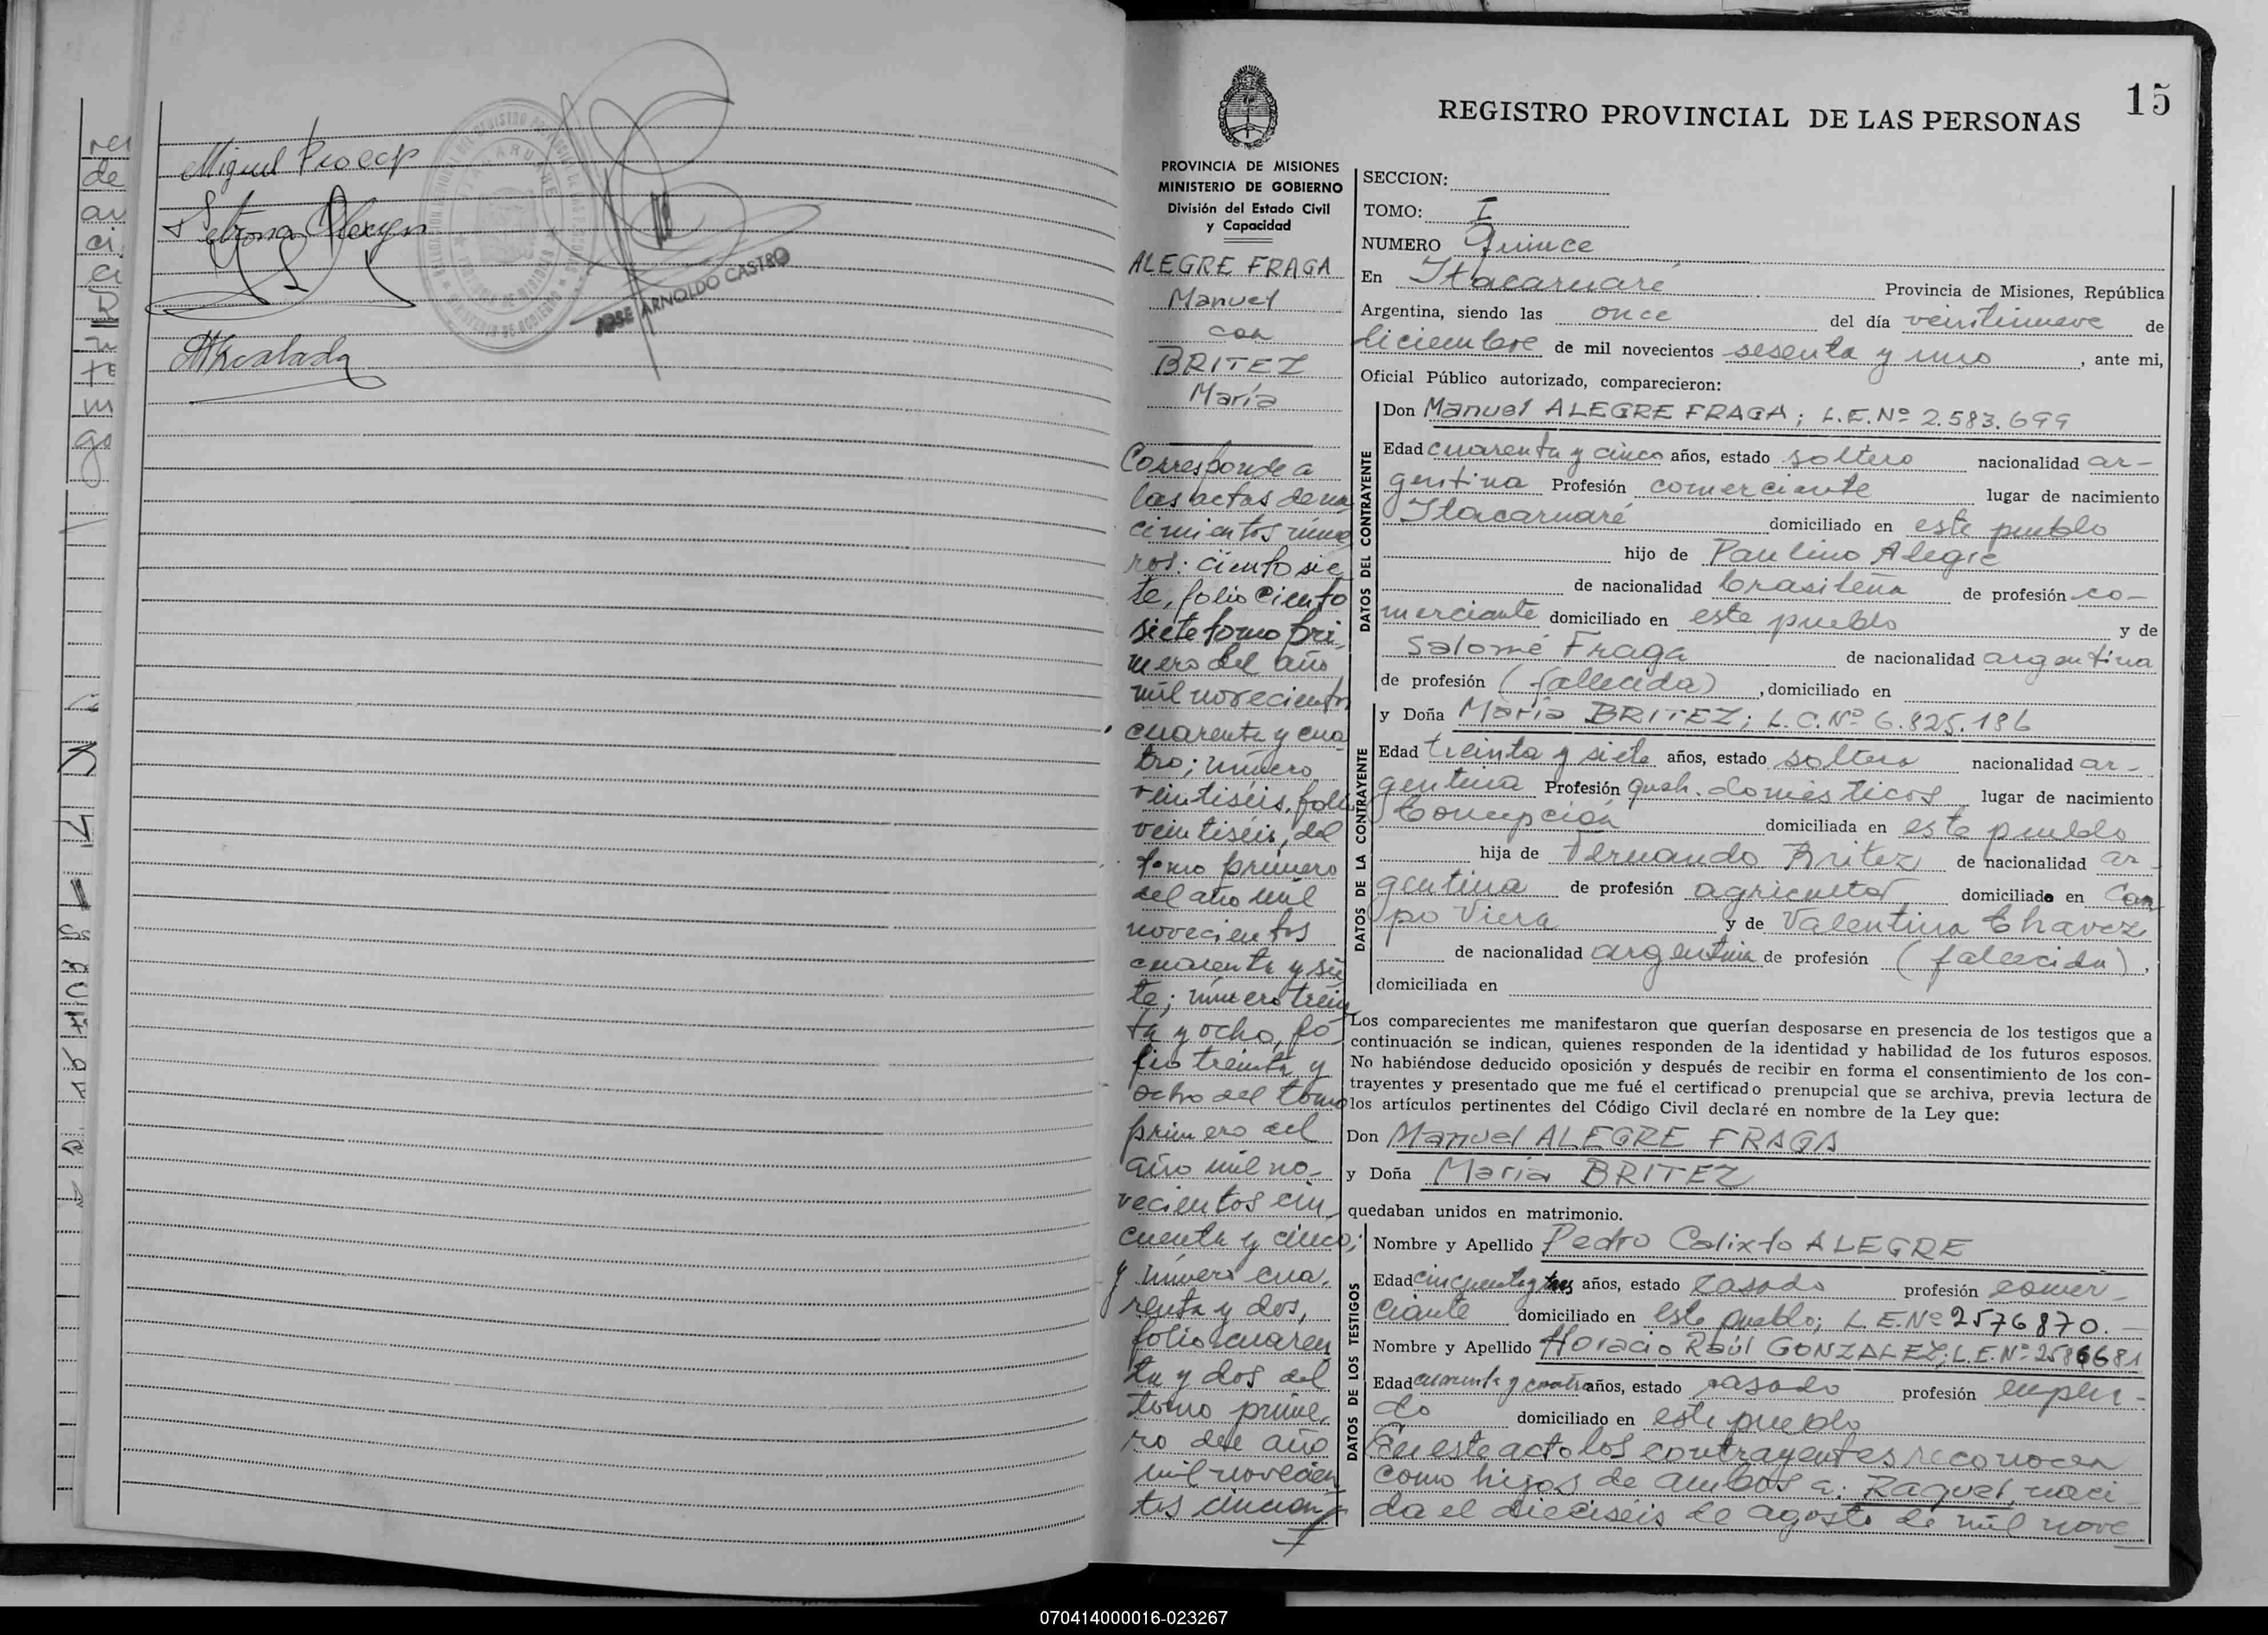 Miguel
Petrona
JOSE ARNOLDO CASTRO
15
REGISTRO PROVINCIAL DE LAS PERSONAS
PROVINCIA DE MISIONES
MINISTERIO DE GOBIERNO
División del Estado Civil
y Capacidad
ALEGRE FRAGA
Manuel
con
BRITEZ
María
Corresponde a
las actas de na
cimientos núme
ros: ciento sie
te, folio ciento
siete tomo pri
mero del año
mil novecientos
cuarenta y cua
tro; número
veintiséis, folio
veintiséis, del
tomo primero
del año mil
novecientos
cuarenta y sie
te; número trein
ta y ocho, fo
lio treinta y
ocho del tomo
primero del
año mil no-
vecientos cin
cuenta y cinco;
y número cua
renta y dos,
folio cuaren
ta y dos del
tomo prime
ro del año
mil novecien
tos cincuen
SECCION:
TOMO: I
NUMERO Quince
En Itacaruaré Provincia de Misiones, República
Argentina, siendo las once del día veintinueve de
diciembre de mil novecientos sesenta y uno, ante mi,
Oficial Público autorizado, comparecieron:
DATOS DEL CONTRAYENTE
Don Manuel ALEGRE FRAGA; L.E.Nº 2.583.699
Edad cuarenta y cinco años, estado soltero nacionalidad ar-
gentina Profesión comerciante lugar de nacimiento
Itacaruaré domiciliado en este pueblo
hijo de Paulino Alegre
de nacionalidad brasileña de profesión co-
merciante domiciliado en este pueblo y de
Salomé Fraga de nacionalidad argentina
de profesión (fallecida), domiciliado en
DATOS DE LA CONTRAYENTE
y Doña María BRITEZ; L.C.Nº 6.825.186
Edad treinta y siete años, estado soltera nacionalidad ar-
gentina Profesión queh. domésticos lugar de nacimiento
Concepción domiciliada en este pueblo
hija de Fernando Britez de nacionalidad ar-
gentina de profesión agricultor domiciliado en Cam
po Viera y de Valentina Chavez
de nacionalidad argentina de profesión (fallecida),
domiciliada en
Los comparecientes me manifestaron que querían desposarse en presencia de los testigos que a
continuación se indican, quienes responden de la identidad y habilidad de los futuros esposos.
No habiéndose deducido oposición y después de recibir en forma el consentimiento de los con-
trayentes y presentado que me fué el certificado prenupcial que se archiva, previa lectura de
los artículos pertinentes del Código Civil declaré en nombre de la Ley que:
Don Manuel ALEGRE FRAGA
y Doña María BRITEZ
quedaban unidos en matrimonio.
DATOS DE LOS TESTIGOS
Nombre y Apellido Pedro Calixto ALEGRE
Edad cincuenta y tres años, estado casado profesión comer-
ciante domiciliado en este pueblo; L.E.Nº 2576870.-
Nombre y Apellido Horacio Raúl GONZALEZ; L.E.Nº 2586681
Edad cuarenta y cuatro años, estado casado profesión emplea-
do domiciliado en este pueblo
En este acto los contrayentes reconocen
como hijos de ambos a: Raquel, naci
da el dieciséis de agosto de mil nove
070414000016-023267